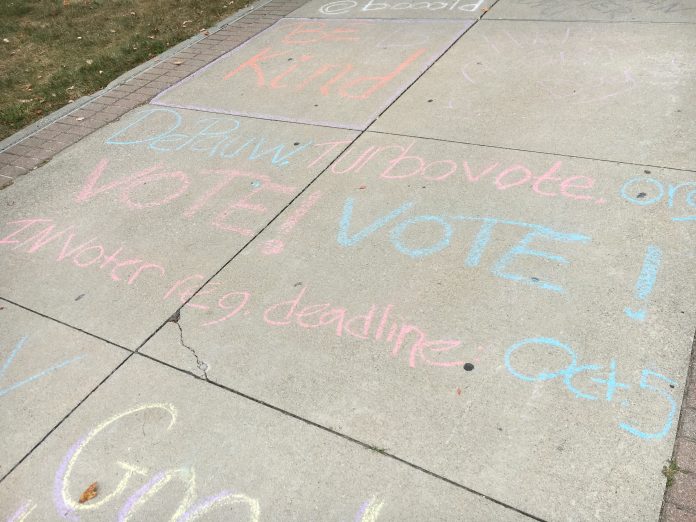 @booold
BE
Kind
DePauw. Turbovote.org
VOTE! VOTE!
IN Voter reg. deadline: Oct.5